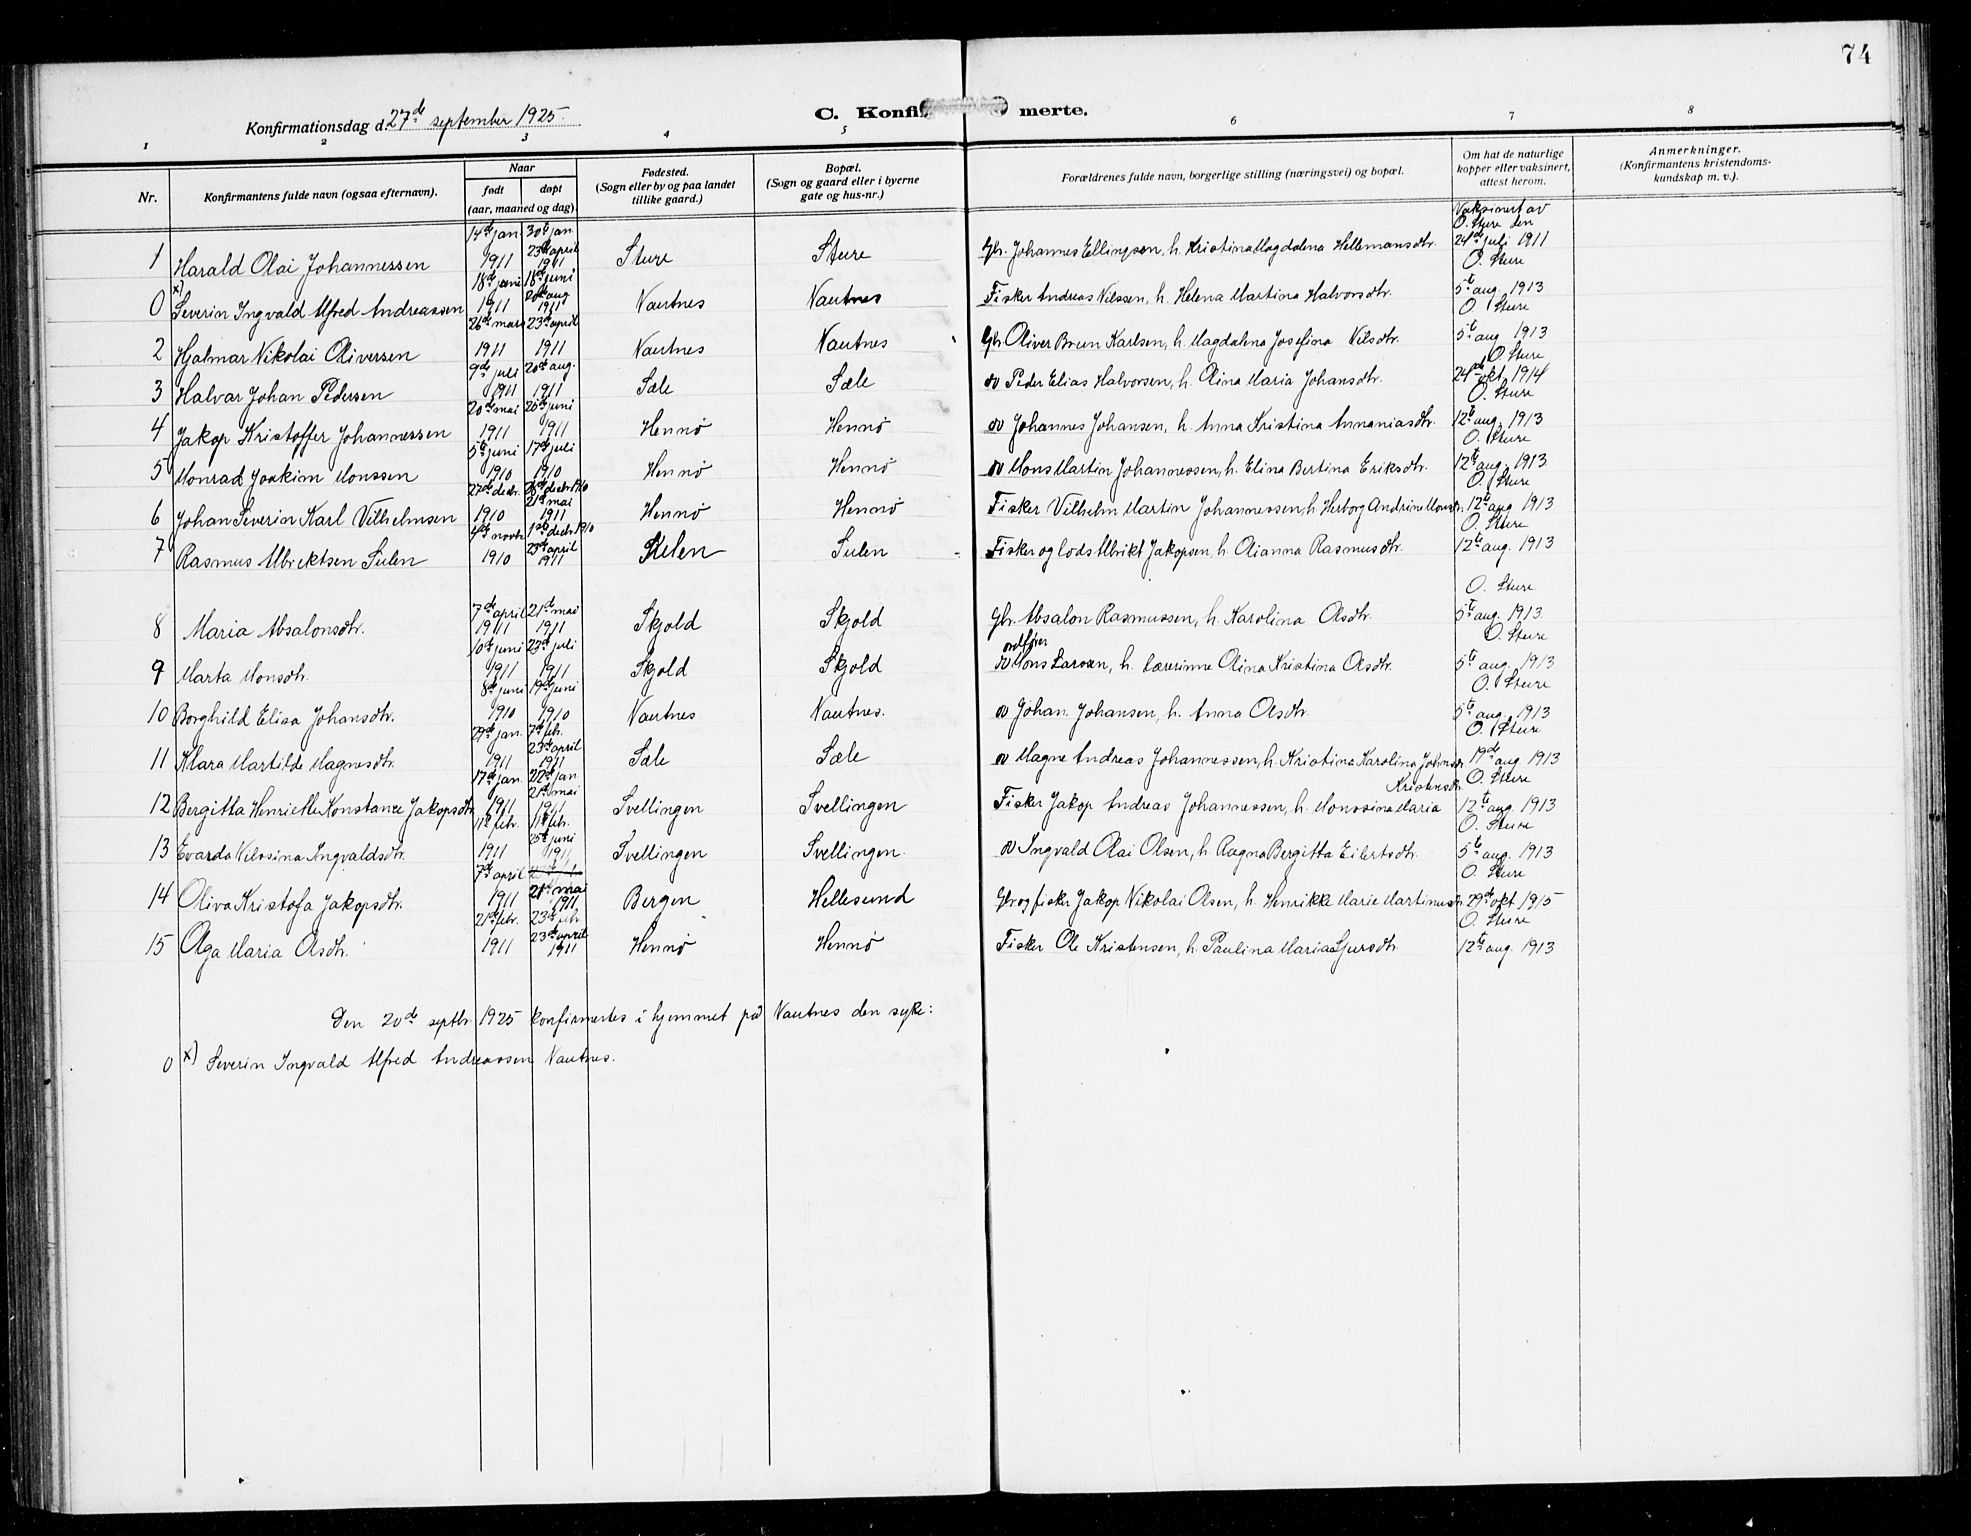 74
Konfirmationsdag d. 27de september 1925.
C. Konfi merte.
1 2 3 4 5 6 7 8
Nr.
Konfirmantens fulde navn (ogsaa efternavn).
Naar
født døpt
(aar, maaned og dag).
Fødested.
(Sogn eller by og paa landet
tillike gaard.)
Bopæl.
(Sogn og gaard eller i byerne
gate og hus-nr.)
Forældrenes fulde navn, borgerlige stilling (næringsvei) og bopæl.
Om hat de naturlige
kopper eller vaksinert,
attest herom.
Anmerkninger.
(Konfirmantens kristendoms-
kundskap m. v.).
Vaksinert av
O. Sture den
14de jan. 30te jan
23de april
1 Harald Olai Johannessen 1911 1911 Sture Sture Gbr. Johannes Ellingsen, h. Kristina Magdalena Hellemansdtr. 24de juli 1911
18de juni 18de juni
20de aug
O. Sture
0 x) Severin Ingvald Alfred Andreassen 1911 1911 Nautnes Nautnes Fisker Andreas Nilssen, h. Helena Martina Halvorsdtr. 5te aug. 1913
26de mars 23de april
O. Sture
2 Hjalmar Nikolai Oliversen 1911 1911 Nautnes Nautnes Gbr. Oliver Brun Karlsen, h. Magdalena Josefina Nilsdtr. 5te aug 1913
9de juli 20de aug.
O. Sture
3 Halvar Johan Pedersen 1911 1911 Sæle Sæle Peder Elias Halvorsen, h. Olina Maria Johansdtr. 24de okt. 1914
20de mai 26de juni
O. Sture
4 Jakop Kristoffer Johannessen 1911 1911 Hennø Hennø Johannes Johansen, h. Anna Kristina Annaniasdtr. 12te aug. 1913
5te juni 17de juli
O. Sture
5 Monrad Joakim Monssen 1910 1910 Hennø Hennø Mons Martin Johannessen, h. Elina Bertina Eriksdtr. 12te aug. 1913
27de decbr. decbr 1910
21de mai
O. Sture
6 Johan Severin Karl Vilhelmsen 1910 1911 Hennø Hennø Fisker Vilhelm Martin Johannessen, h. Herborg Andrine Monsdtr. 12te aug 1913
4de novbr 1ste decbr 1910
23de april
O. Sture
7 Rasmus Ulriktsen Sulen 1910 1911 Sulen Fisker og lods Ulrikt Jakopsen, h. Olianna Rasmusdtr. 12te aug. 1913
O. Sture
7de april 21de mai
8 Maria Absalonsdtr. 1911 1911 Skjold Skjold Gbr. Absalon Rasmussen, h. Karolina Olsdtr. 5te aug. 1913
10de juni 23de juli
ordfører
O. Sture
9 Marta Monsdtr. 1911 1911 Skjold Skjold Mons Larsen, h. lærerinne Olina Kristina Olsdtr. 5te aug. 1913
8de juni 19de juni
O. Sture
10 Borghild Elisa Johansdtr. 1910 1910 Nautnes Nautnes. Johan Johansen, h. Anna Olsdtr. 5te aug. 1913
29de jan. 7de feb.
23de april
O. Sture
11 Klara Martilde Magnesdtr. 1911 1911 Sæle Sæle Magne Andreas Johannessen, h. Kristina Karolina Johnsdtr. 19de aug. 1913
17de jan. 22de jan
21de mai
Kristensdtr.
O. Sture
12 Bergitta Henriette Konstanze Jakopsdtr. 1911 1911 Svellingen Svellingen Fisker Jakop Andreas Johannessen, h. Monssina Maria 12te aug. 1913
11te febr. 11te febr.
25de juni
O. Sture
13 Evarda Nilssina Ingvaldsdtr. 1911 1911 Svellingen Svellingen. Ingvald Olai Olsen, h. Ragna Bergitta Eilertsdtr. 5te aug. 1913
7de april
21de mai
O. Sture
14 Oliva Kristofa Jakopsdtr. 1911 1911. Bergen Hellesund Gbr og fisker Jakop Nikolai Olsen, h. Henrikke Marie Martinusdtr. 29de okt 1915
21de febr. 23de febr
23de april
O. Sture
15 Olga Maria Olsdtr. 1911 1911 Hennø Hennø Fisker Ole Kristensen, h. Paulina Maria Sjursdtr. 12te aug. 1913
Den 20de septbr. 1925 konfirmertes i hjemmet på Nautnes den syke:
0 x) Severin Ingvald Alfred Andreassen Nautnes.